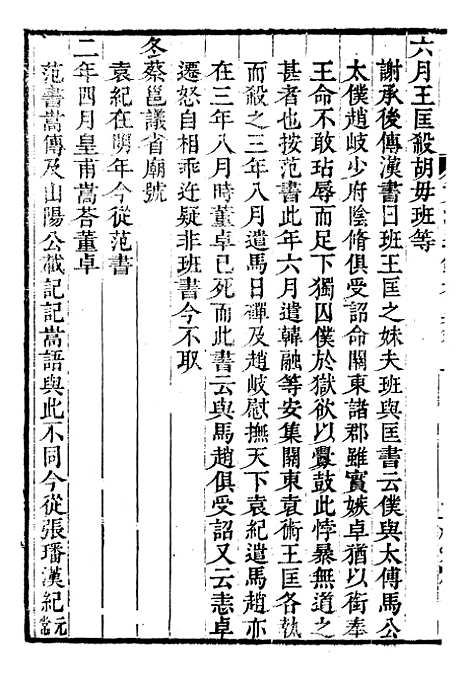 六月王匡殺胡毋班等
謝承後傳漢書曰班王匡之妹夫班與匡書云僕與太傅馬公
太僕趙岐少府陰脩俱受詔命關東諸郡雖實嫉卓猶以銜奉
王命不敢玷辱而足下獨囚僕於獄欲以釁鼓此悖暴無道之
甚者也按范書此年六月遣韓融等安集關東袁術王匡各執
而殺之三年八月遣馬日磾及趙岐慰撫天下袁紀遣馬趙亦
在三年八月時董卓已死而此書云與馬趙俱受詔又云恚卓
遷怒自相乖迕疑非班書今不取
冬蔡邕議省廟號
袁紀在明年今從范書
二年四月皇甫嵩荅董卓
范書嵩傳及山陽公載記記嵩語與此不同今從張璠漢紀元常